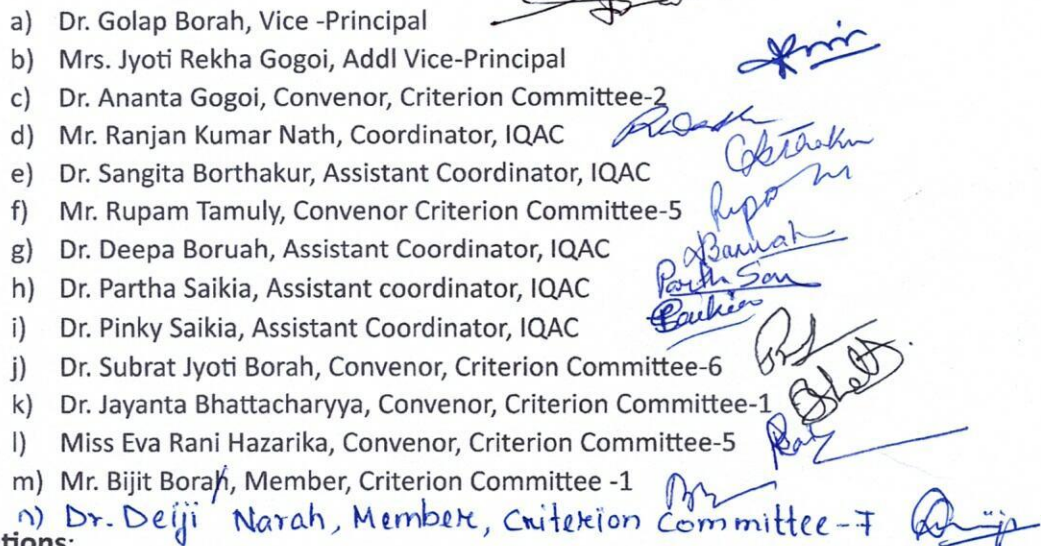 a) Dr. Golap Borah, Vice -Principal
b) Mrs. Jyoti Rekha Gogoi, Addl Vice-Principal
c) Dr. Ananta Gogoi, Convenor, Criterion Committee-2
d) Mr. Ranjan Kumar Nath, Coordinator, IQAC
e) Dr. Sangita Borthakur, Assistant Coordinator, IQAC
f) Mr. Rupam Tamuly, Convenor Criterion Committee-5
g) Dr. Deepa Boruah, Assistant Coordinator, IQAC
h) Dr. Partha Saikia, Assistant coordinator, IQAC
i) Dr. Pinky Saikia, Assistant Coordinator, IQAC
j) Dr. Subrat Jyoti Borah, Convenor, Criterion Committee-6
k) Dr. Jayanta Bhattacharyya, Convenor, Criterion Committee-1
l) Miss Eva Rani Hazarika, Convenor, Criterion Committee-5
m) Mr. Bijit Borah, Member, Criterion Committee -1
n) Dr. Deiji Narah, Member, Criterion Committee-7